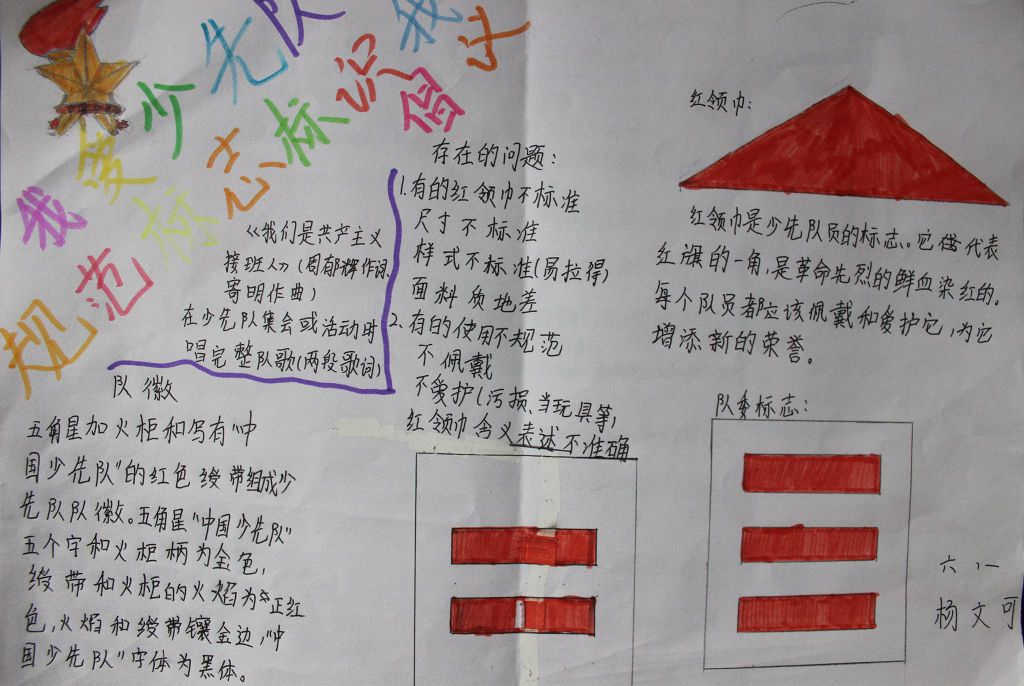 我爱少先队
规范标志标识我
倡
《我们是共产主义
接班人》(周郁辉作词
寄明作曲)
在少先队集会或活动时
唱完整队歌(两段歌词)
队徽
五角星加火柜和写有"中
国少先队"的红色绶带组成少
先队队徽。五角星"中国少先队"
五个字和火柜柄为金色,
绶带和火柜的火焰为正红
色,火焰和绶带镶金边,"中
国少先队"字体为黑体。
存在的问题:
1.有的红领巾不标准
尺寸不标准
样式不标准(易拉得)
面料质地差
2.有的使用不规范
不佩戴
不爱护(污损、当玩具等)
红领巾含义表述不准确
红领巾:
红领巾是少先队员的标志。它代表
红旗的一角,是革命先烈的鲜血染红的。
每个队员都应该佩戴和爱护它,为它
增添新的荣誉。
队委标志:
六、一
杨文可